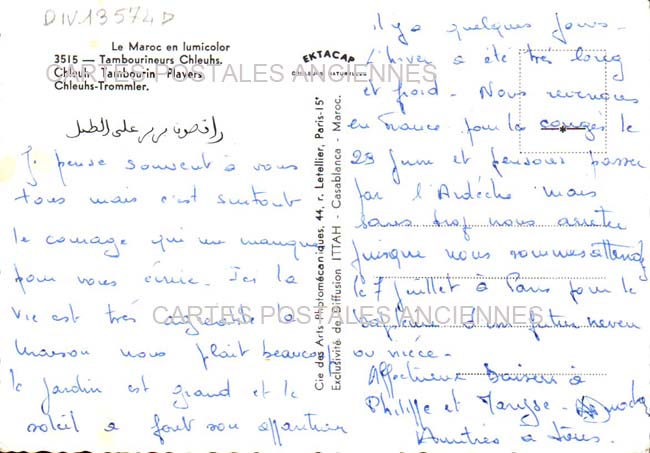 DIV13574D
Le Maroc en lumicolor
3515 — Tambourineurs Chleuhs.
Chleuh Tambourin Players
Chleuhs-Trommler.
CARTES POSTALES ANCIENNES
EKTACAP
على الطبل
Je pense souvent à vous
tous mais c'est surtout
le courage qui me manque
pour vous écrire. Ici la
vie est très agréable la
maison nous plait beaucoup
le jardin est grand et le
soleil a fait son apparition
Cie des Arts-Photomécaniques, 44, r. Letellier, Paris-15e
Exclusivité de Diffusion ITTAH - Casablanca - Maroc.
il y a quelques jours.
L'hiver a été très long
et froid. Nous revenons
en France pour les congés le
23 Juin et pensons passer
par l'Ardèche mais
sans trop nous arrêter
puisque nous sommes attendus
le 7 juillet à Paris pour le
baptême d'un futur neveu
ou nièce.
CARTES POSTALES ANCIENNES
Affectueux Baisers à
Philippe et
Amitiés à